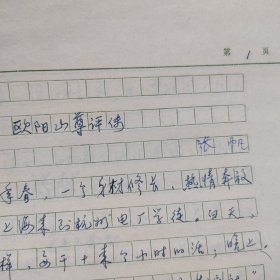 第 1 页
欧阳山尊评传
张帆
年春，一个身材修长、热情奔放
上海来到杭州电厂学徒。白天，
样，要干十来个小时的活；晚上，